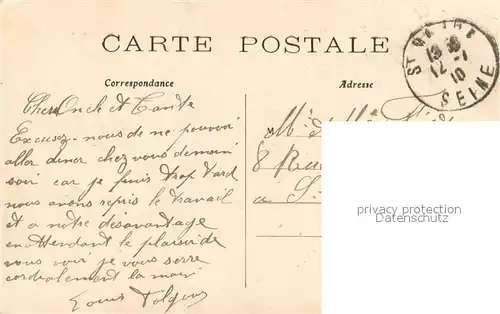 CARTE POSTALE
Correspondance
Adresse
Cher Oncle et Tante
Excusez-nous de ne pouvoir
aller diner chez vous demain
soir car je finis trop tard
nous avons repris le travail
et a notre désavantage
en attendant le plaisir de
vous voir je vous serre
cordialement la main
Louis
8 Rue
a S
ST
12 -1
10
SEINE
privacy protection
Datenschutz